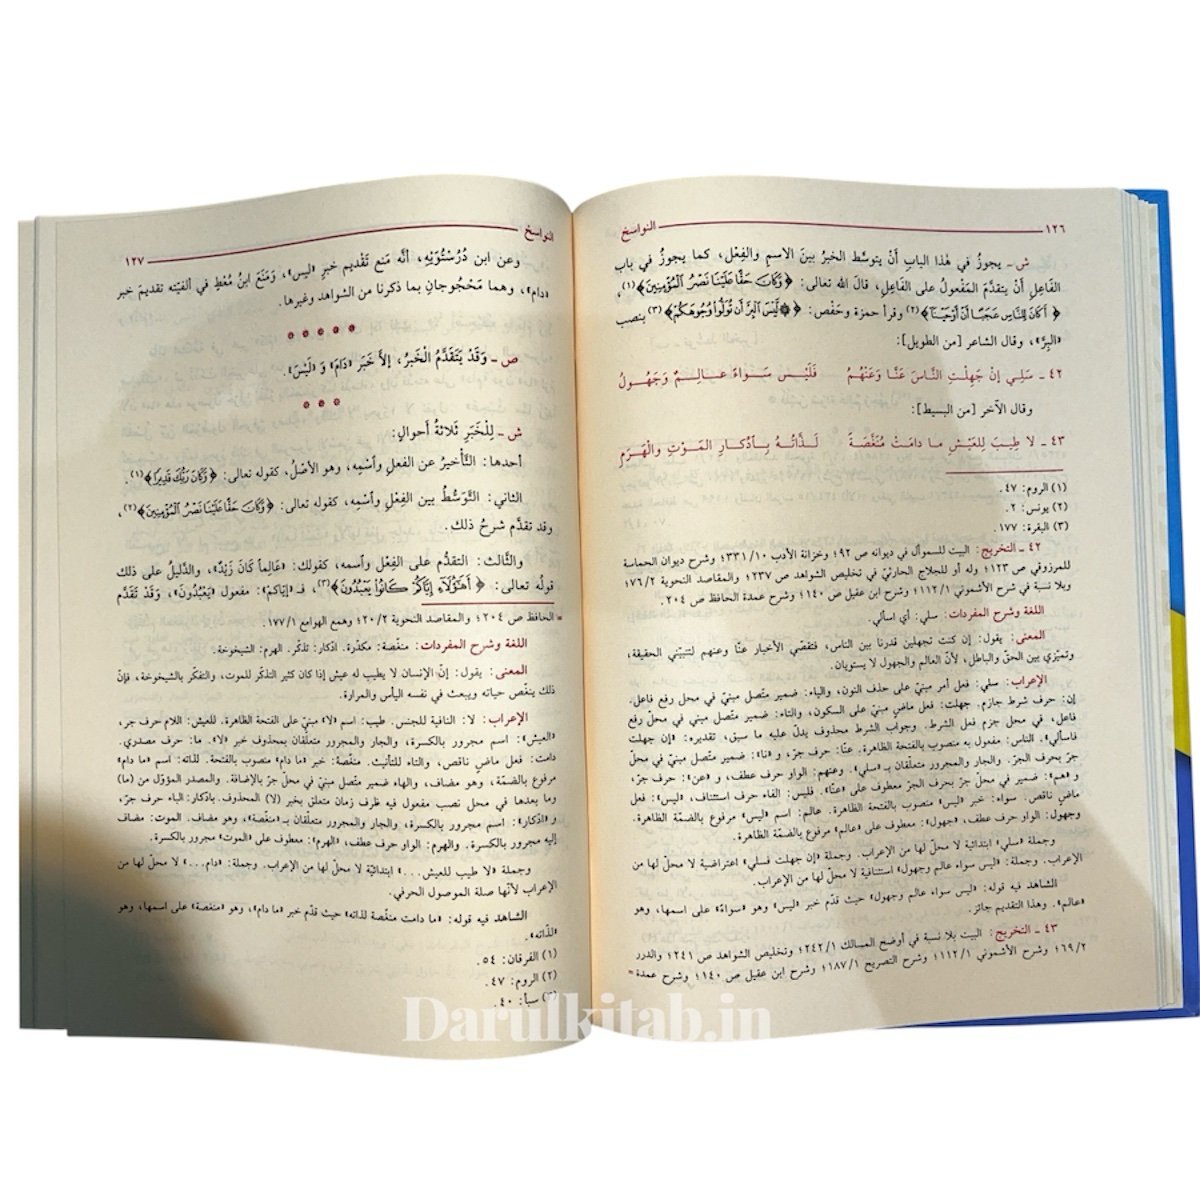 ١٢٦ النواسخ
ش ـ يجوزُ في هٰذا البابِ أنْ يتوسَّط الخبرُ بينَ الاسمِ والفِعْل، كما يجوزُ في باب
الفَاعِل أنْ يتقدَّمَ المَفعولُ على الفَاعِل، قالَ الله تعالى: ﴿وَكَانَ حَقًّا عَلَيْنَا نَصْرُ الْمُؤْمِنِينَ﴾(١)،
﴿أَكَانَ لِلنَّاسِ عَجَبًا أَنْ أَوْحَيْنَا﴾(٢) وقرأ حمزة وحَفْص: ﴿۞ لَيْسَ الْبِرَّ أَن تُوَلُّوا وُجُوهَكُمْ﴾(٣) بنصب
«البِرَّ»، وقال الشاعر [من الطويل]:
٤٢ ـ سَلِي إنْ جَهِلْتِ النَّاسَ عَنَّا وَعَنْهُمُ فَلَيْسَ سَوَاءً عَـالِـمٌ وَجَهُولُ
وقال الآخر [من البسيط]:
٤٣ ـ لا طِيبَ لِلعَيْشِ ما دامَتْ مُنَغَّصَةً لَـذَّاتُهُ بِـادِّكَارِ المَوْتِ والْهَرَمِ
(١) الروم: ٤٧.
(٢) يونس: ٢.
(٣) البقرة: ١٧٧.
٤٢ ـ التخريج: البيت للسموأل في ديوانه ص ٩٢؛ وخزانة الأدب ٣٣١/١٠؛ وشرح ديوان الحماسة
للمرزوقي ص ١٢٣؛ وله أو للجلاج الحارثيّ في تخليص الشواهد ص ٢٣٧؛ والمقاصد النحوية ٧٦/٢؛
وبلا نسبة في شرح الأشموني ١١٢/١؛ وشرح ابن عقيل ص ١٤٠؛ وشرح عمدة الحافظ ص ٢٠٤.
اللغة وشرح المفردات: سلي: أي اسألي.
المعنى: يقول: إن كنت تجهلين قدرنا بين الناس، فتقصّي الأخبار عنّا وعنهم لتتبيّني الحقيقة،
وتميّزي بين الحقّ والباطل، لأنّ العالم والجهول لا يستويان.
الإعراب: سلي: فعل أمر مبنيّ على حذف النون، والياء: ضمير متّصل مبنيّ في محل رفع فاعل.
إن: حرف شرط جازم. جهلت: فعل ماض مبنيّ على السكون، والتاء: ضمير متّصل مبني في محلّ رفع
فاعل، في محل جزم فعل الشرط. وجواب الشرط محذوف يدلّ عليه ما سبق، تقديره: «إن جهلت
فاسألي». الناس: مفعول به منصوب بالفتحة الظاهرة. عنّا: حرف جرّ، و «نا»: ضمير متّصل مبنيّ في محلّ
جرّ بحرف الجرّ. والجار والمجرور متعلّقان بـ «سلي». وعنهم: الواو حرف عطف، و «عن»: حرف جرّ،
و «هم»: ضمير في محلّ جرّ بحرف الجرّ معطوف على «عنّا». فليس: الفاء حرف استئناف، «ليس»: فعل
ماضٍ ناقص. سواء: خبر «ليس» منصوب بالفتحة الظاهرة. عالم: اسم «ليس» مرفوع بالضمّة الظاهرة.
وجهول: الواو حرف عطف، «جهول»: معطوف على «عالم» مرفوع بالضمّة الظاهرة.
وجملة «سلي» ابتدائية لا محلّ لها من الإعراب. وجملة «إن جهلت فسلي» اعتراضية لا محلّ لها من
الإعراب. وجملة: «ليس سواء عالم وجهول» استئنافية لا محلّ لها من الإعراب.
الشاهد فيه قوله: «ليس سواء عالم وجهول» حيث قدّم خبر «ليس» وهو «سواءً» على اسمها، وهو
«عالم». وهذا التقديم جائز.
٤٣ ـ التخريج: البيت بلا نسبة في أوضح المسالك ٢٤٢/١؛ وتخليص الشواهد ص ٢٤١؛ والدرر
٦٩/٢؛ وشرح الأشموني ١١٢/١؛ وشرح التصريح ١٨٧/١؛ وشرح ابن عقيل ص ١٤٠؛ وشرح عمدة =
النواسخ ١٢٧
وعن ابن دُرُسْتُوَيْهِ، أنَّه مَنع تَقْديم خبرِ «ليس»، وَمَنَعَ ابنُ مُعْطٍ في ألفيّته تقديمَ خبر
«دام»، وهما مَحْجُوجانِ بما ذكرنا من الشواهد وغيرها.
* * * * *
ص ـ وَقَدْ يَتَقَدَّمُ الْخَبَرُ، إلاّ خَبَرَ «دَامَ» وَ «لَيْسَ».
* * *
ش ـ لِلْخَبَرِ ثَلاثَةُ أَحوالٍ:
أحدها: التَّأخيرُ عن الفعلِ وأسْمِه، وهو الأصْلُ، كقوله تعالى: ﴿وَكَانَ رَبُّكَ قَدِيرًا﴾(١).
الثاني: التَّوَسُّطُ بين الفِعْلِ وأسْمِه، كقوله تعالى: ﴿وَكَانَ حَقًّا عَلَيْنَا نَصْرُ الْمُؤْمِنِينَ﴾(٢)،
وقد تقدَّم شرحُ ذلك.
والثَّالث: التقدُّم على الفِعْل وأسمه، كقولك: «عَالِماً كَانَ زَيْدٌ»، والدَّليلُ على ذلك
قولُه تعالى: ﴿أَهَٰؤُلَاءِ إِيَّاكُمْ كَانُوا يَعْبُدُونَ﴾(٣)، فـ «إيّاكم»: مفعول «يَعْبُدُونَ»، وَقَدْ تَقَدَّم
= الحافظ ص ٢٠٤؛ والمقاصد النحوية ٢٠/٢؛ وهمع الهوامع ١١٧/١.
اللغة وشرح المفردات: منغّصة: مكدّرة. ادّكار: تذكّر. الهرم: الشيخوخة.
المعنى: يقول: إنّ الإنسان لا يطيب له عيش إذا كان كثير التذكّر للموت، والتفكّر بالشيخوخة، فإنّ
ذلك ينغّص حياته ويبعث في نفسه اليأس والمرارة.
الإعراب: لا: النافية للجنس. طيب: اسم «لا» مبنيّ على الفتحة الظاهرة. للعيش: اللام حرف جر،
«العيش»: اسم مجرور بالكسرة، والجار والمجرور متعلّقان بمحذوف خبر «لا». ما: حرف مصدري.
دامت: فعل ماضٍ ناقص، والتاء للتأنيث. منغّصة: خبر «ما دام» منصوب بالفتحة. لذاته: اسم «ما دام»
مرفوع بالضمّة، وهو مضاف، والهاء ضمير متّصل مبنيّ في محلّ جرّ بالإضافة. والمصدر المؤوّل من (ما)
وما بعدها في محل نصب مفعول فيه ظرف زمان متعلق بخبر (لا) المحذوف. بادكار: الباء حرف جرّ،
و «ادّكار»: اسم مجرور بالكسرة، والجار والمجرور متعلّقان بـ «منغّصة»، وهو مضاف. الموت: مضاف
إليه مجرور بالكسرة. والهرم: الواو حرف عطف، «الهرم»: معطوف على «الموت» مجرور بالكسرة.
وجملة «لا طيب للعيش...» ابتدائيّة لا محلّ لها من الإعراب. وجملة: «دام...» لا محلّ لها من
الإعراب لأنّها صلة الموصول الحرفي.
الشاهد فيه قوله: «ما دامت منغّصة لذاته» حيث قدّم خبر «ما دام»، وهو «منغصة» على اسمها، وهو
«لذاته».
(١) الفرقان: ٥٤.
(٢) الروم: ٤٧.
(٣) سبأ: ٤٠.
Darulkitab.in